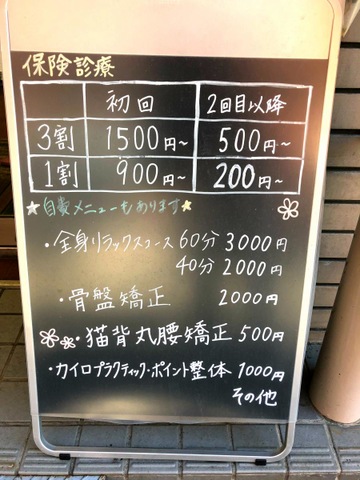 保険診療
初回 2回目以降
3割 1500円~ 500円~
1割 900円~ 200円~
★自費メニューもあります★
・全身リラックスコース 60分 3000円
40分 2000円
・骨盤矯正 2000円
・猫背丸腰矯正 500円
・カイロプラクティック・ポイント整体 1000円
その他